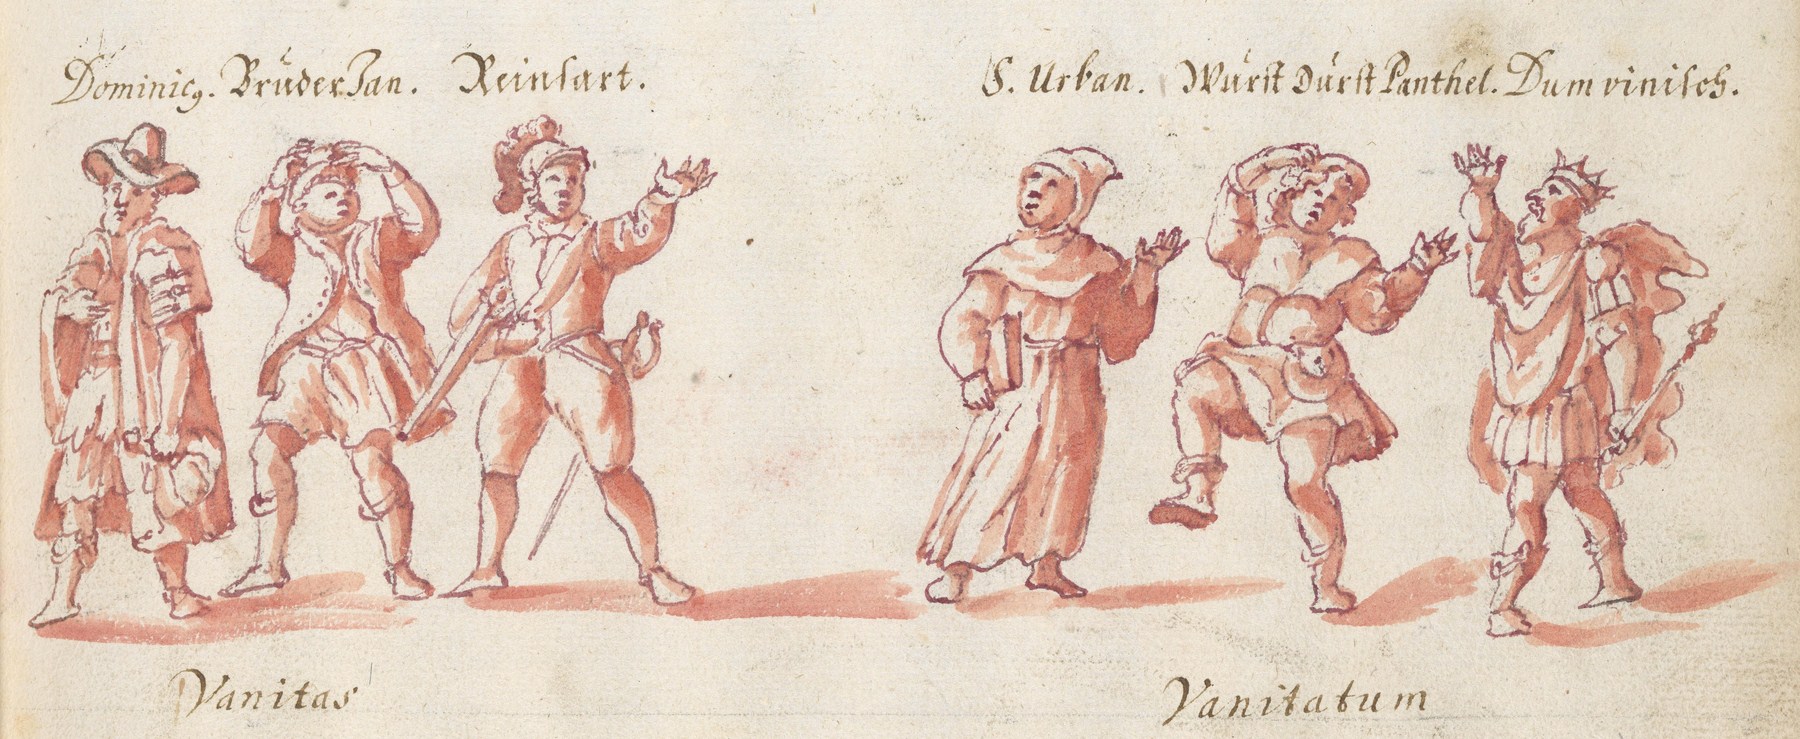 Dominicꝰ. Brüder Jan. Reinhart. S. Urban. Wurst Durst Panthel. Dum vinisch.
Vanitas Vanitatum